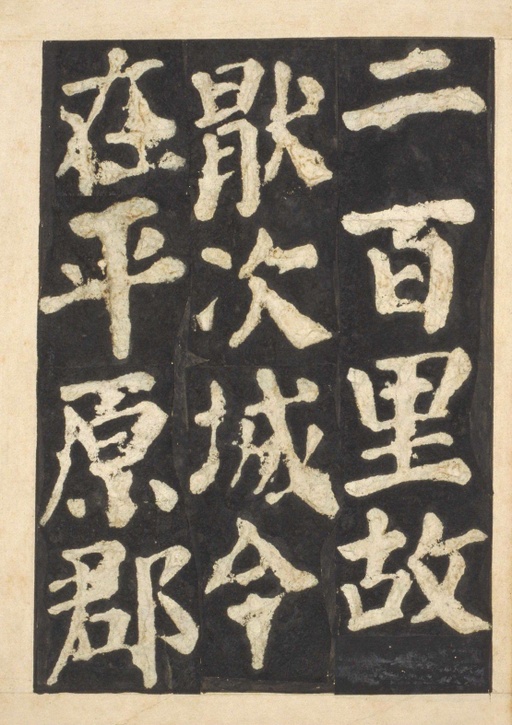 二百里故
猒次城今
在平原郡